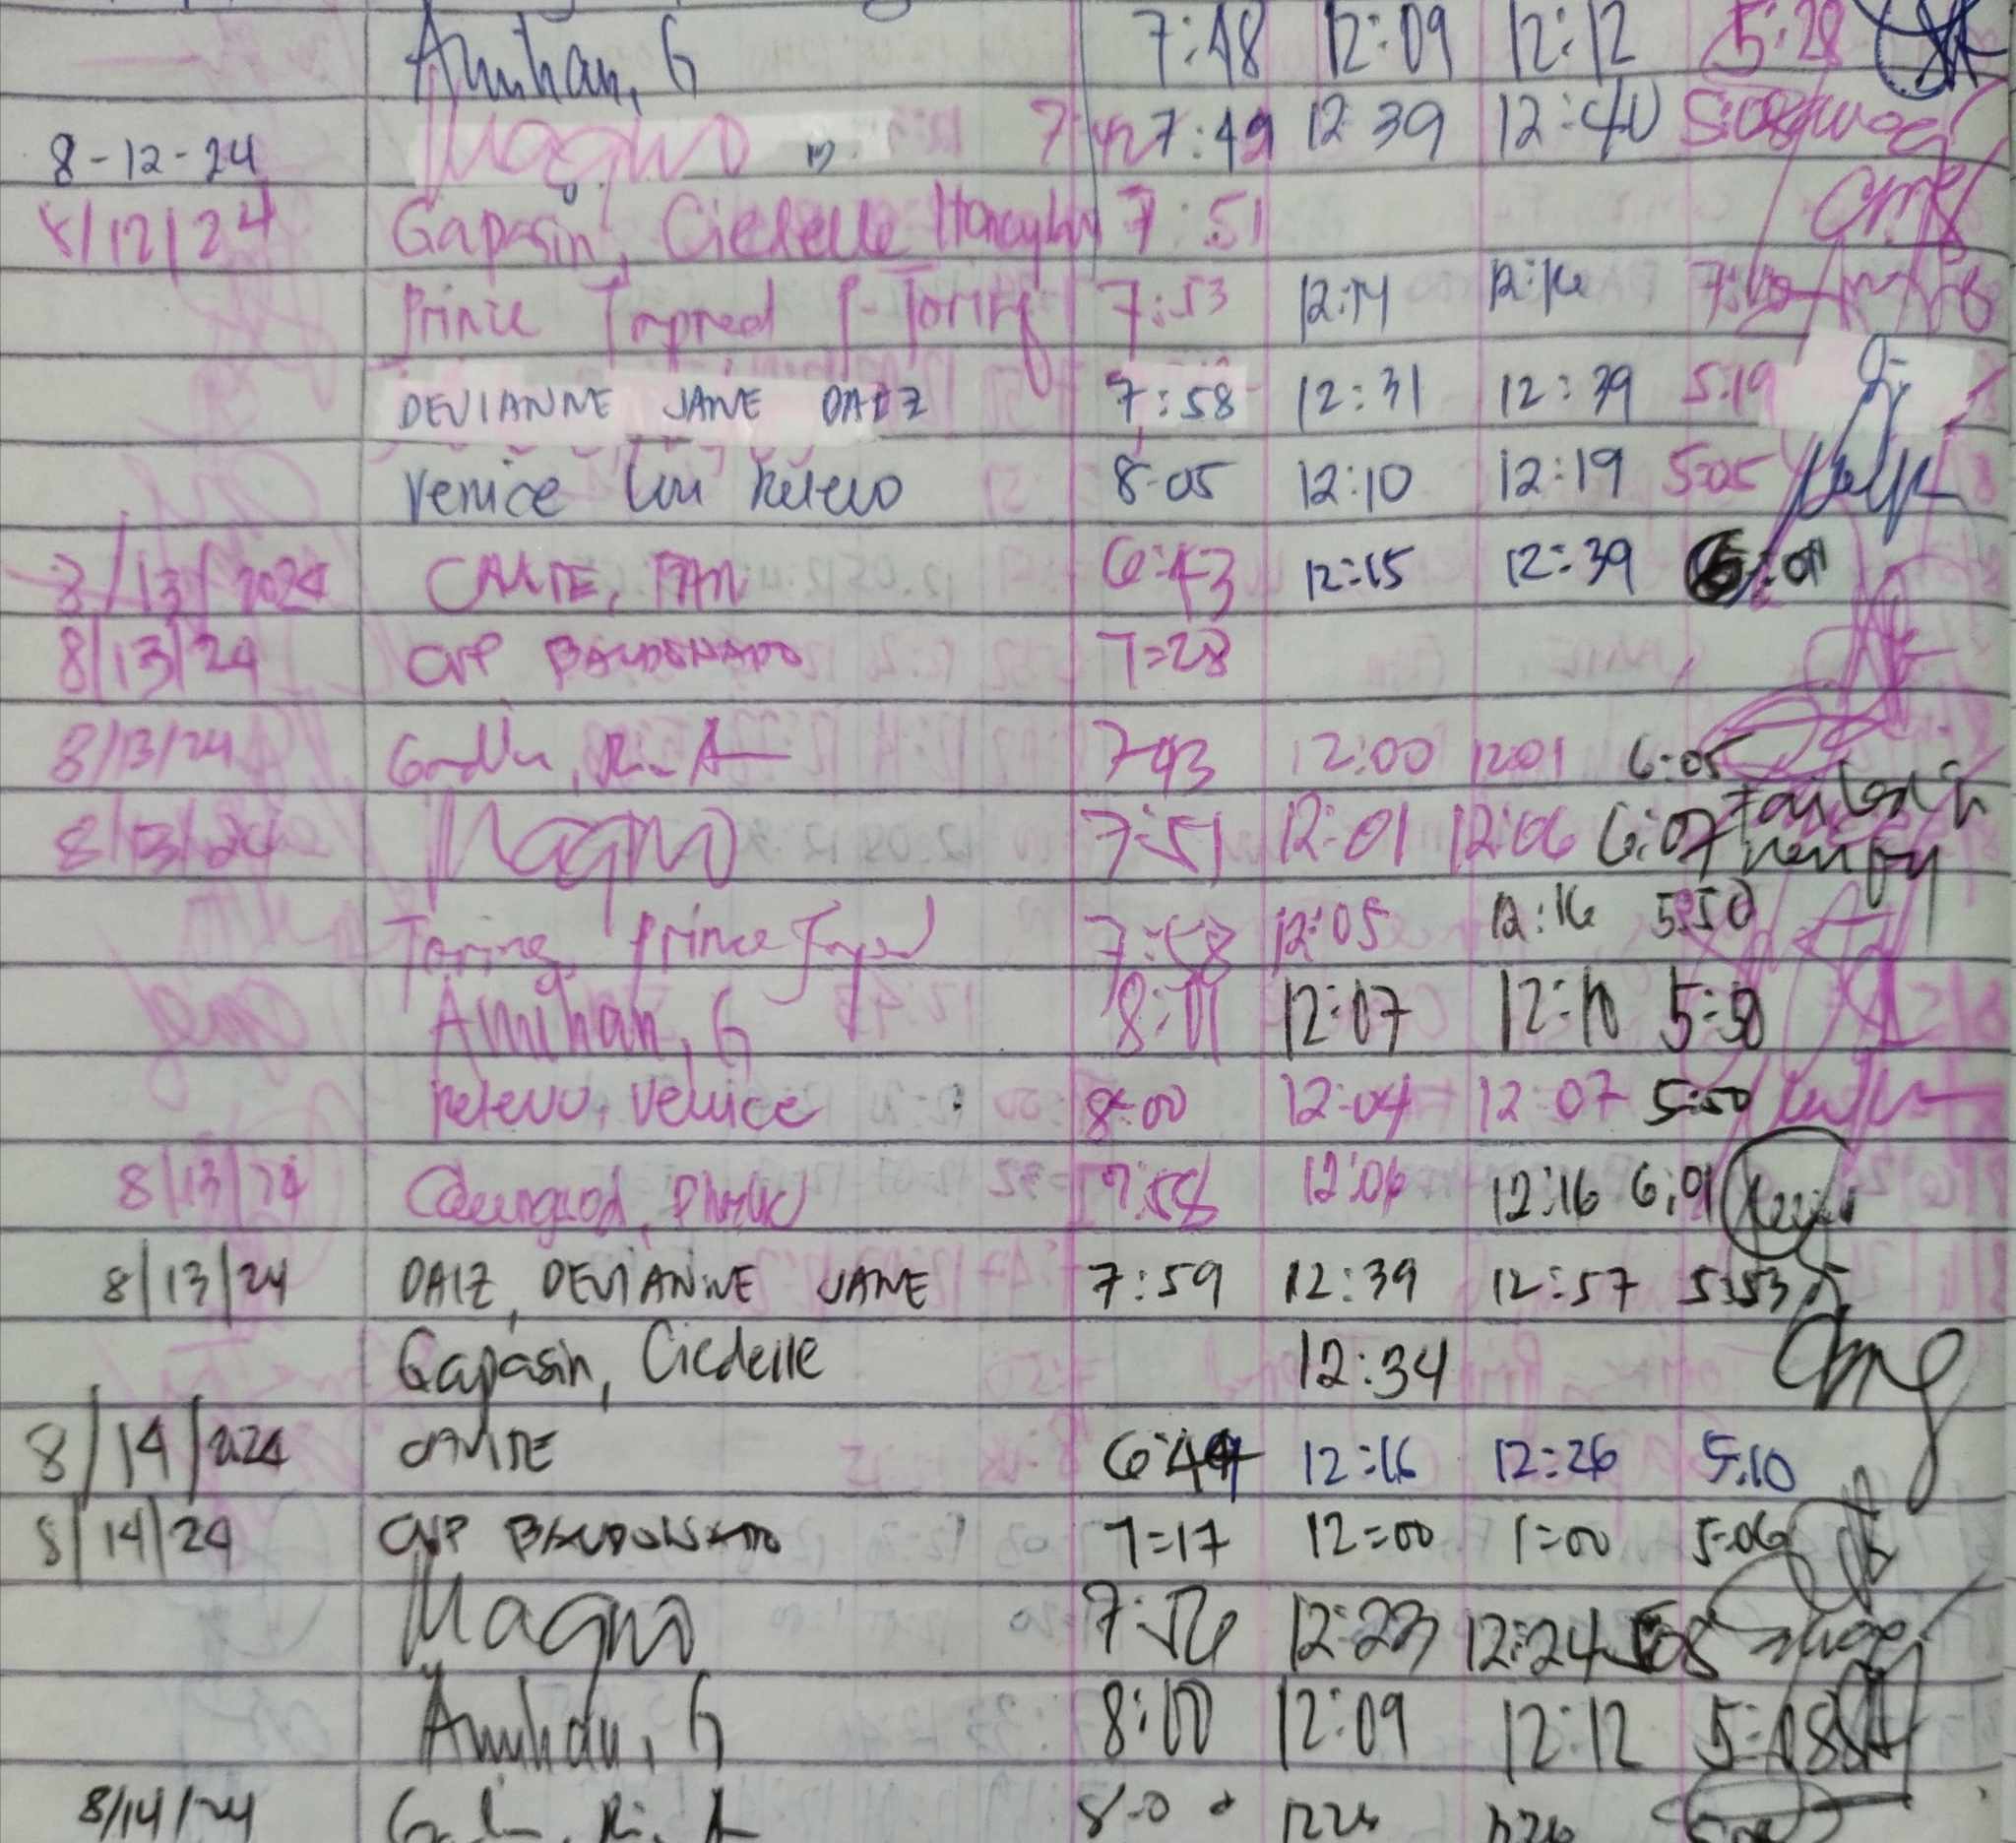 Amihan, G 7:48 12:09 12:12 5:28
8-12-24 Magno 7:49 12:39 12:40 5:08
8/12/24 Gapasin, Cieđelle Honeylyn 7:51
Prince P. Toring 7:53 12:14 12:16
DEVIANNE JANE DAIZ 7:58 12:31 12:39 5:19
Venice Relevo 8:05 12:10 12:19 5:05
8/13/2024 CAUTE, 6:43 12:15 12:39
8/13/24 CVP BALDONADO 7=28
8/13/24 7:43 12:00 12:01 6:05
8/13/24 Magno 7:51 12:01 12:06 6:07
Toring, Prince 7:58 12:05 12:16 5:50
Amihan, G 8:01 12:07 12:10 5:50
Relevo, Venice 8:00 12:04 12:07 5:50
8/13/24 7:58 12:06 12:16 6:01
8/13/24 DAIZ, DEVIANNE JANE 7:59 12:39 12:57 5:53
Gapasin, Ciedelle 12:34
8/14/2024 CAUTE 6:44 12:16 12:26 5:10
8/14/24 CVP BALDONADO 7=17 12=00 1=00 5:06
Magno 7:56 12:23 12:24 5:08
Amihan, G 8:00 12:09 12:12 5:08
8/14/24